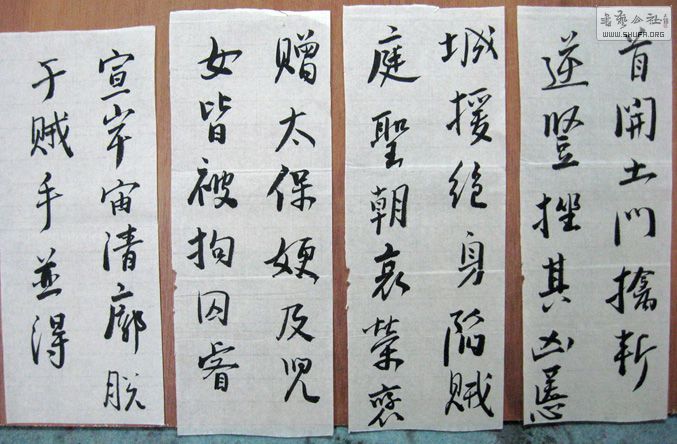 首開土門擒斬
逆竪挫其凶慝
城援絕身陷賊
庭聖朝哀榮褒
贈太保嫂及兒
女皆被拘囚睿
宣岸宙清廓脫
于賊手並得
書藝公社
WWW.SHUFA.ORG